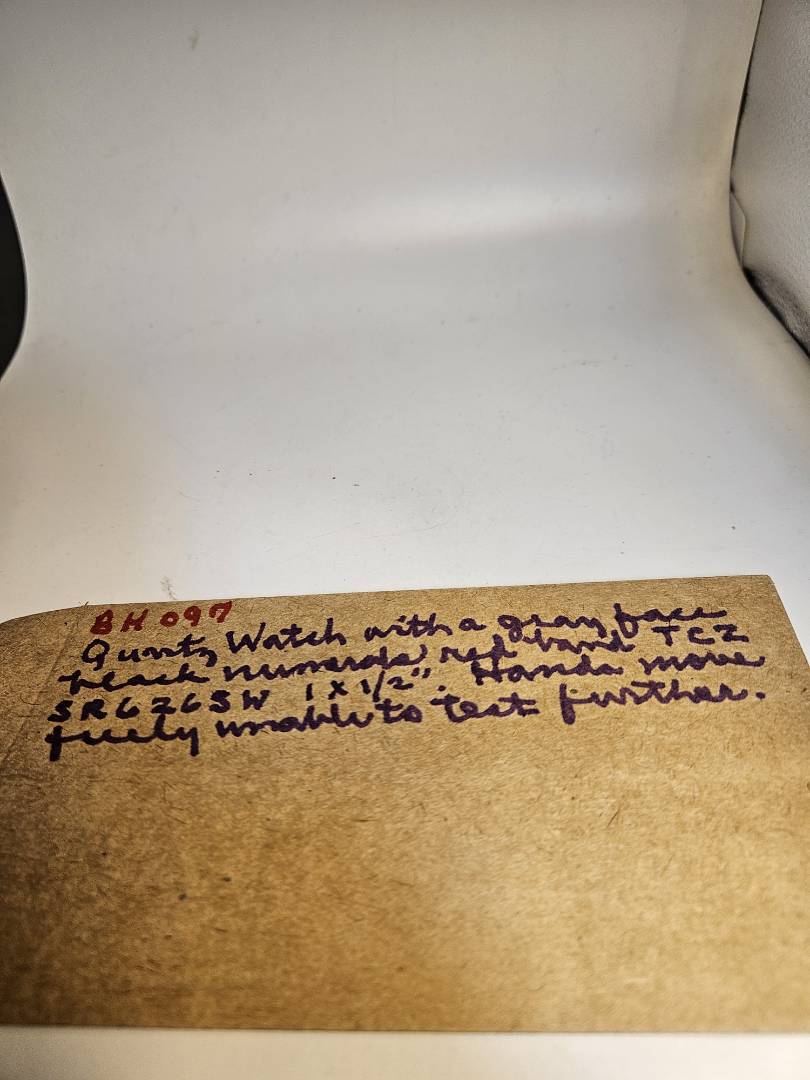 BH 097
Quartz Watch with a gray face
black numerals red band TCZ
SR626SW 1 x 1/2". Hands move
freely unable to test further.